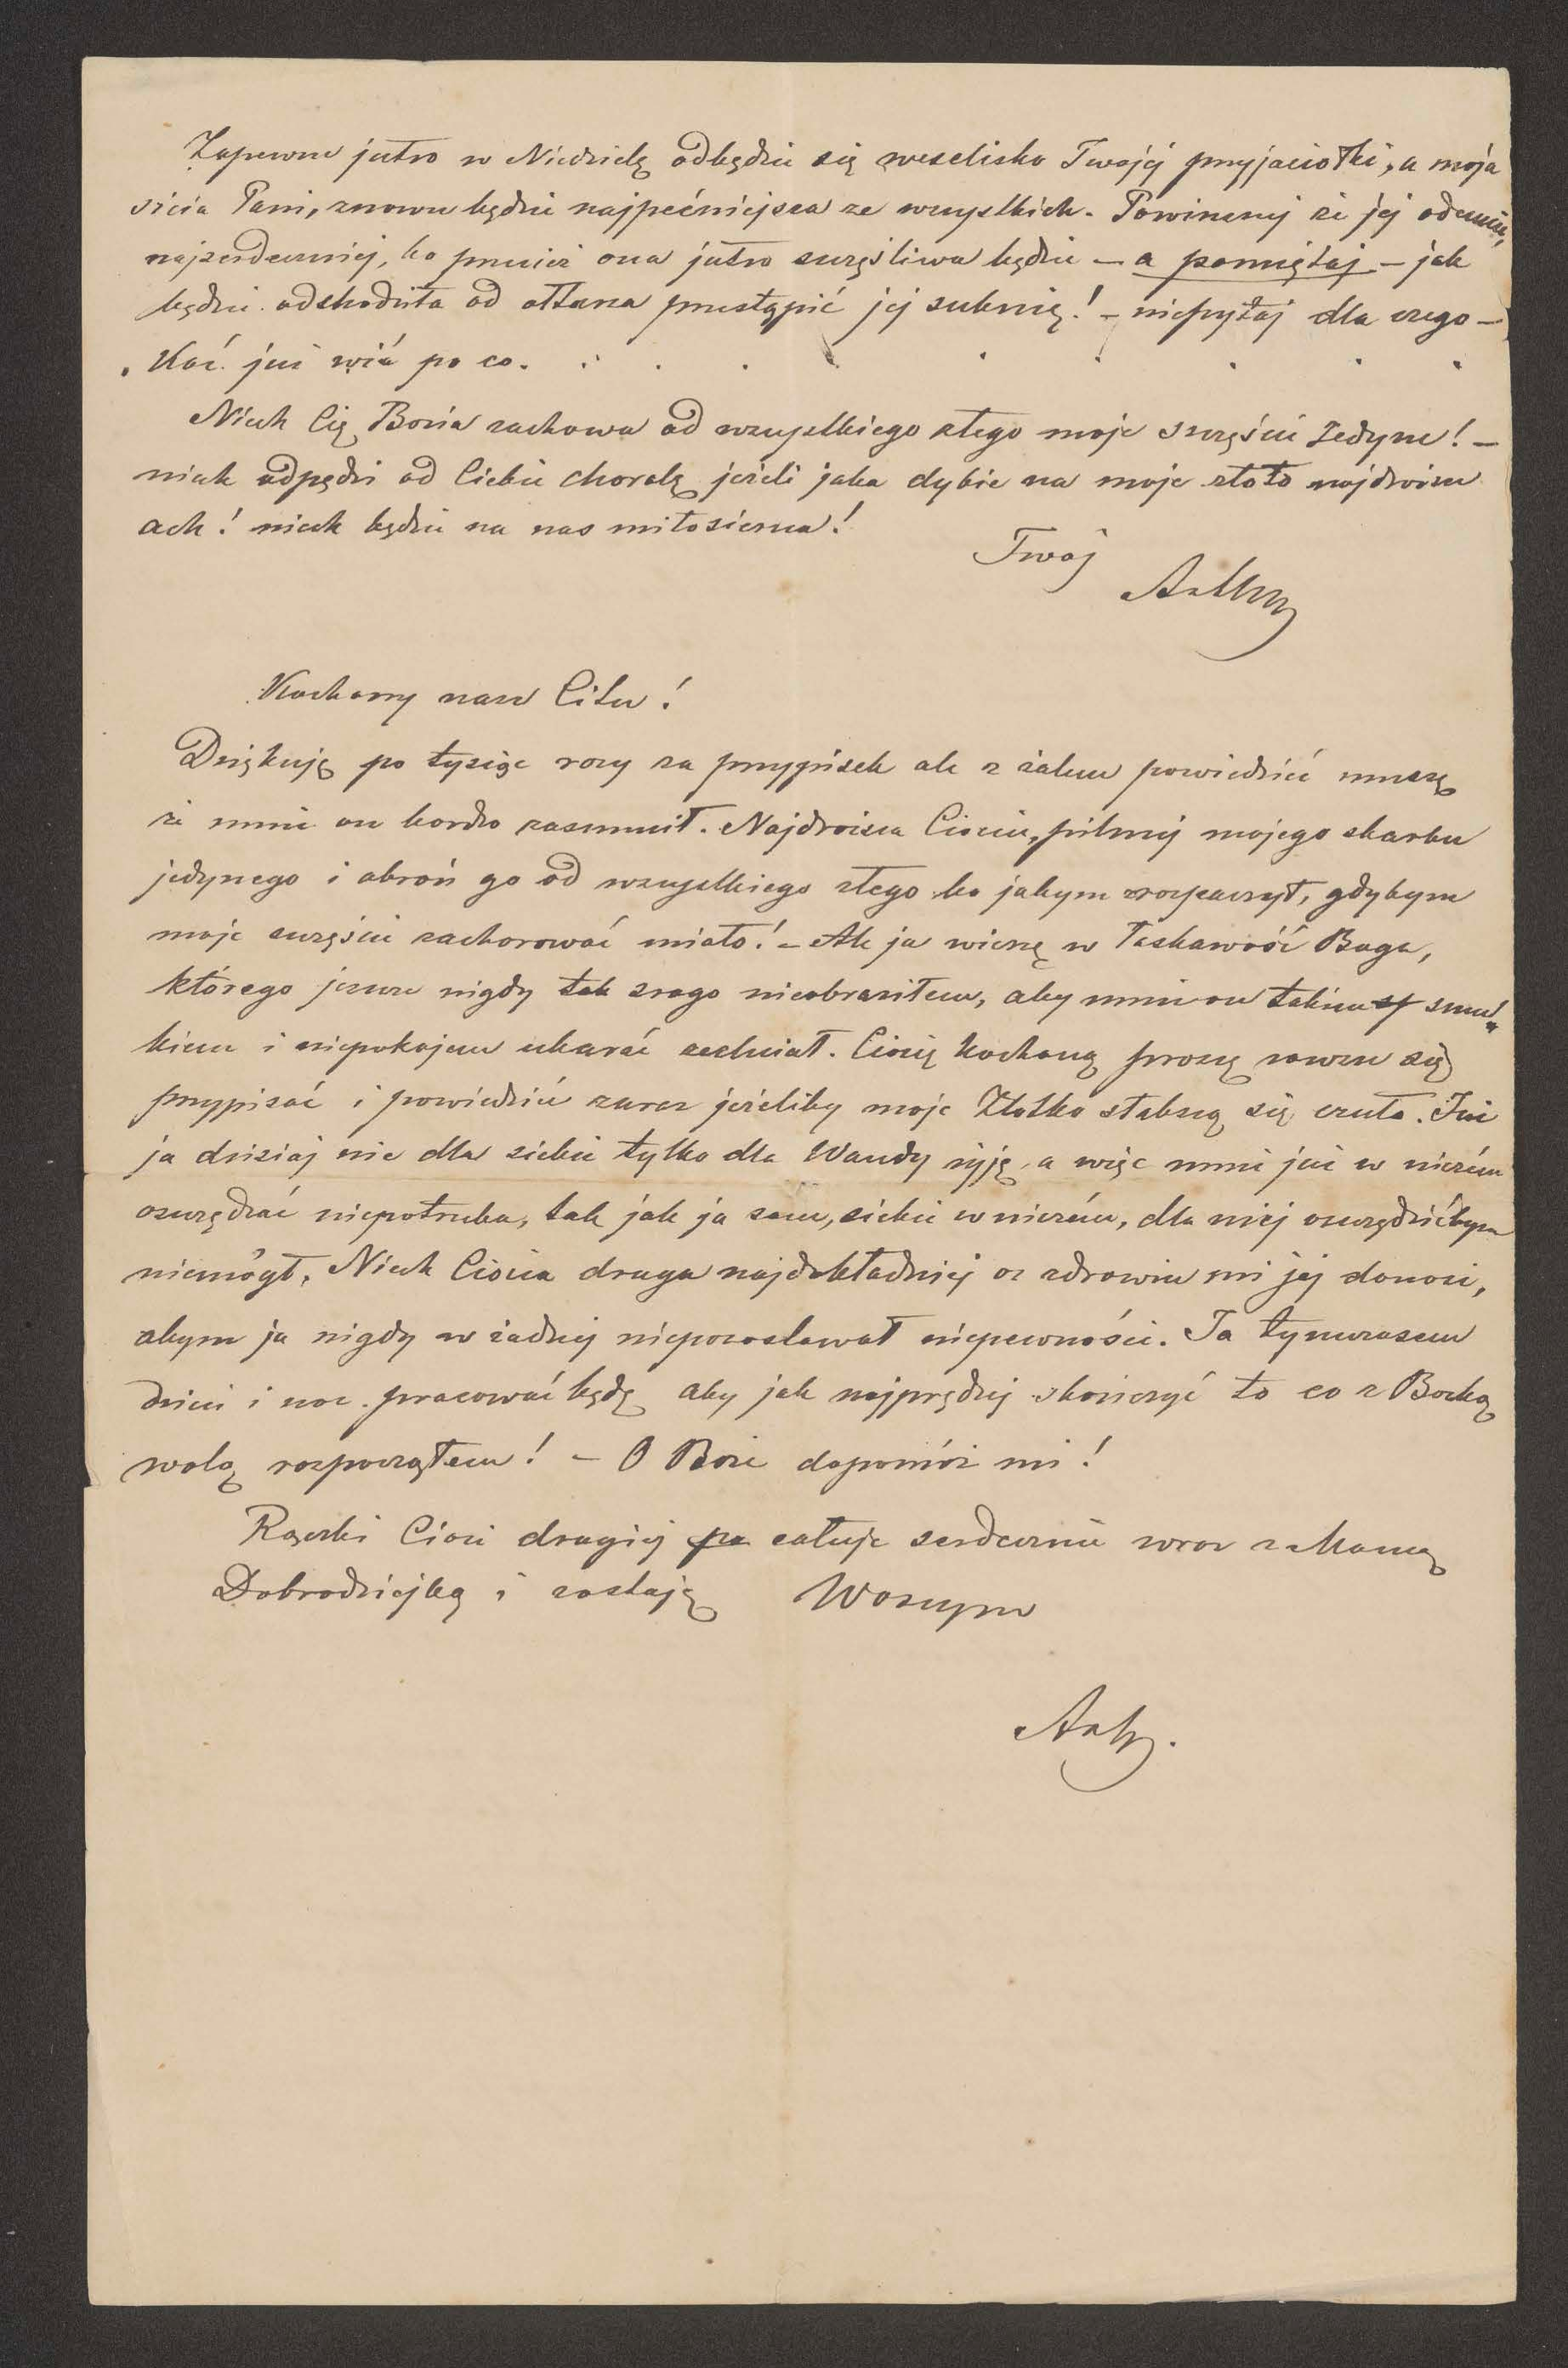 Zapewne jutro w Niedzielę odbędzie się weselisko Twojej przyjaciołki, a moja
sicia Pani, znowu będzie najpećniejsza ze wszystkich. Powinszuj że jej odemnie,
najserdeczniej, bo przecież ona jutro szczęśliwa będzie – a pamiętaj – jak
będzie odchodziła od ołtarza przestąpić jej suknię! – niepytaj dla czego –
Koć już wié po co. . . . . . . . . .
Niech Cię Bozia zachowa od wszystkiego złego moje szczęście Jedyne! –
niech odpędzi od Ciebie chorobę jeżeli jaka dybie na moje złoto najdroższe
ach! niech będzie na nas miłosierna!
Twój
Kochany nasz Citu!
Dziękuję po tysiąc razy za przypisek ale z żalem powiedzieć muszę
że mnie on bardzo zasmucił. Najdroższa Ciociu, pilnuj mojego skarbu
jedynego i obroń go od wszystkiego złego bo jabym rozpaczył, gdybym
moje szczęście zachorować miało! – Ale ja wierzę w łaskawość Boga,
którego jeszcze nigdy tak srogo nieobraziłem, aby mnie on takim smut„
kiem i niepokojem ukarać zechciał. Ciocię kochaną proszę zawsze się
przypisać i powiedzieć zaraz jeżeliby moje Złotko słabszą się czuło. Już
ja dzisiaj nie dla siebie tylko dla Wandy żyję, a więc mnie już w niczém
oszczędzać niepotrzeba, tak jak ja sam, siebie w niczém, dla niej oszczędzićbym
niemógł. Niech Ciocia droga najdokładniej o zdrowiu mi jej donosi,
abym ja nigdy w żadnej niepozostawał niepewności. Ja tymczasem
dzień i noc pracować będę aby jak najprędzej skończyć to co z Boską
wolą rozpocząłem! – O Boże dopomóż mi!
Rączki Cioci drogiej całuje serdecznie wraz z Mamą
Dobrodziejką i zostaję Waszym